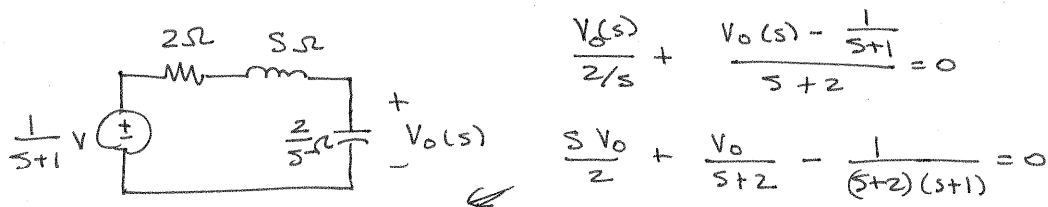 2Ω SΩ
1/(S+1) V
2/S Ω
+
V₀(s)
−
V₀(s)/(2/s) + (V₀(s) - 1/(S+1))/(S+2) = 0
S V₀/2 + V₀/(S+2) - 1/((S+2)(S+1)) = 0